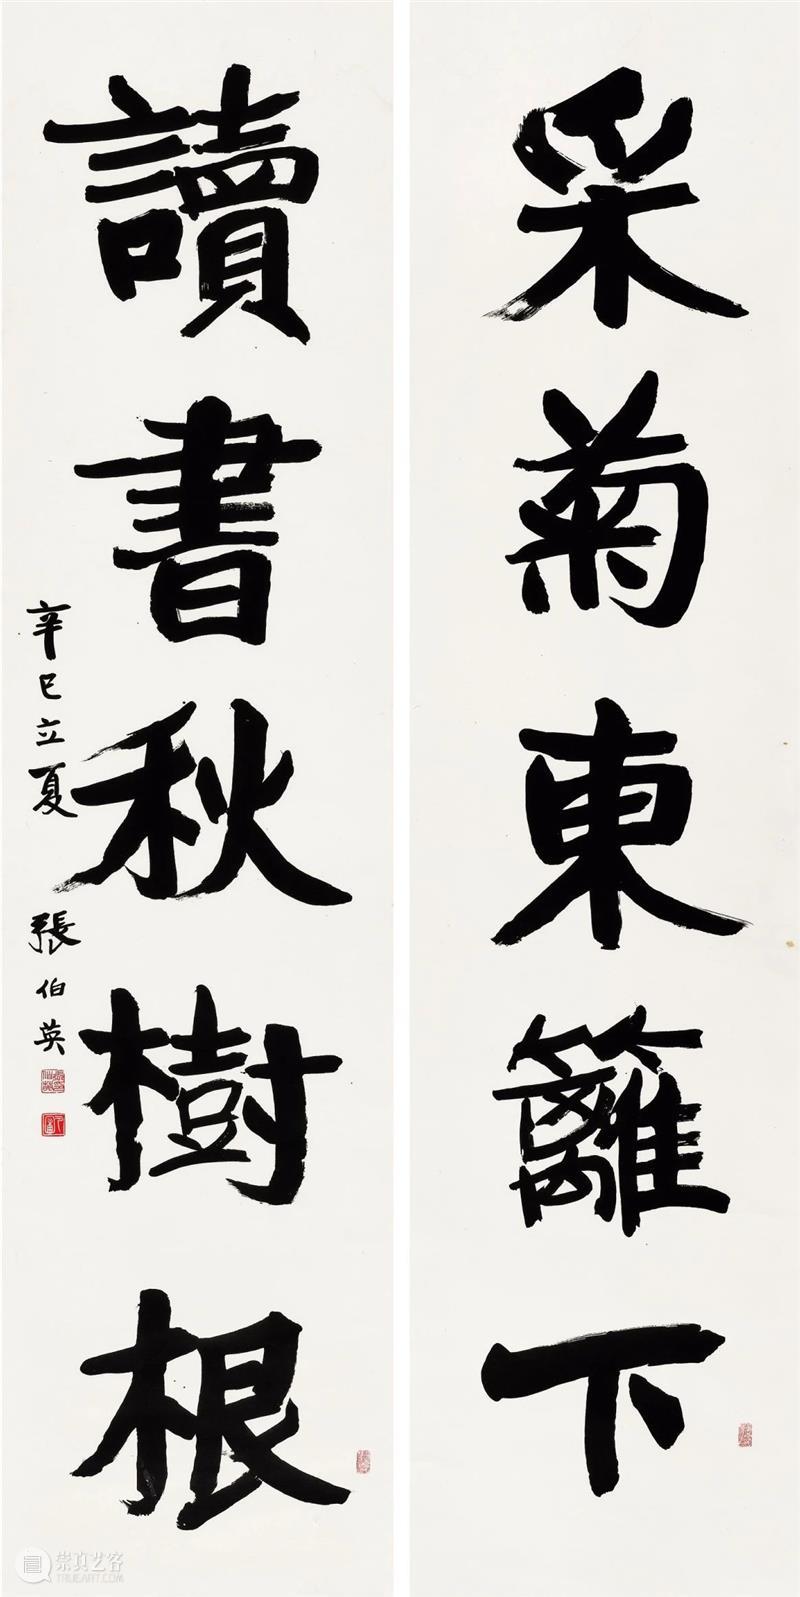 采菊東籬下
讀書秋樹根
辛巳立夏
張伯英
崇真艺客
TRUEART.COM